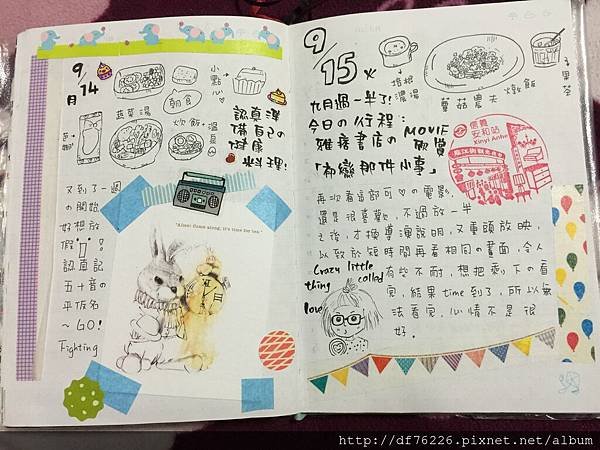 9月14
小點心
朝食
蔬菜湯
炊飯
溫泉
認真準
備自己の
健康
料理!
又到了一週
の開始,
好想放
假!
認真記
五十音の
平仮名
～GO!
Fighting
"Alice! Come along, it's time for tea"
9/15 火
培根
濃湯
蘑菇農夫
燉飯
黑
茶
九月過一半了!
今日の行程:
雅痞書店の MOVIE
欣賞
「初戀那件小事」
信義
安和站
Xinyi Anhe
臨江街觀光夜市
再次看這部可♡の電影,
還是很喜歡,不過放一半
之後,才換導演說明,又重頭放映,
以致於短時間再看相同の畫面,令人
有些不耐,想把剩下の看
完,結果time到了,所以無
法看完,心情不是很
好。
Crazy little
thing called
love
http://df76226.pixnet.net/album